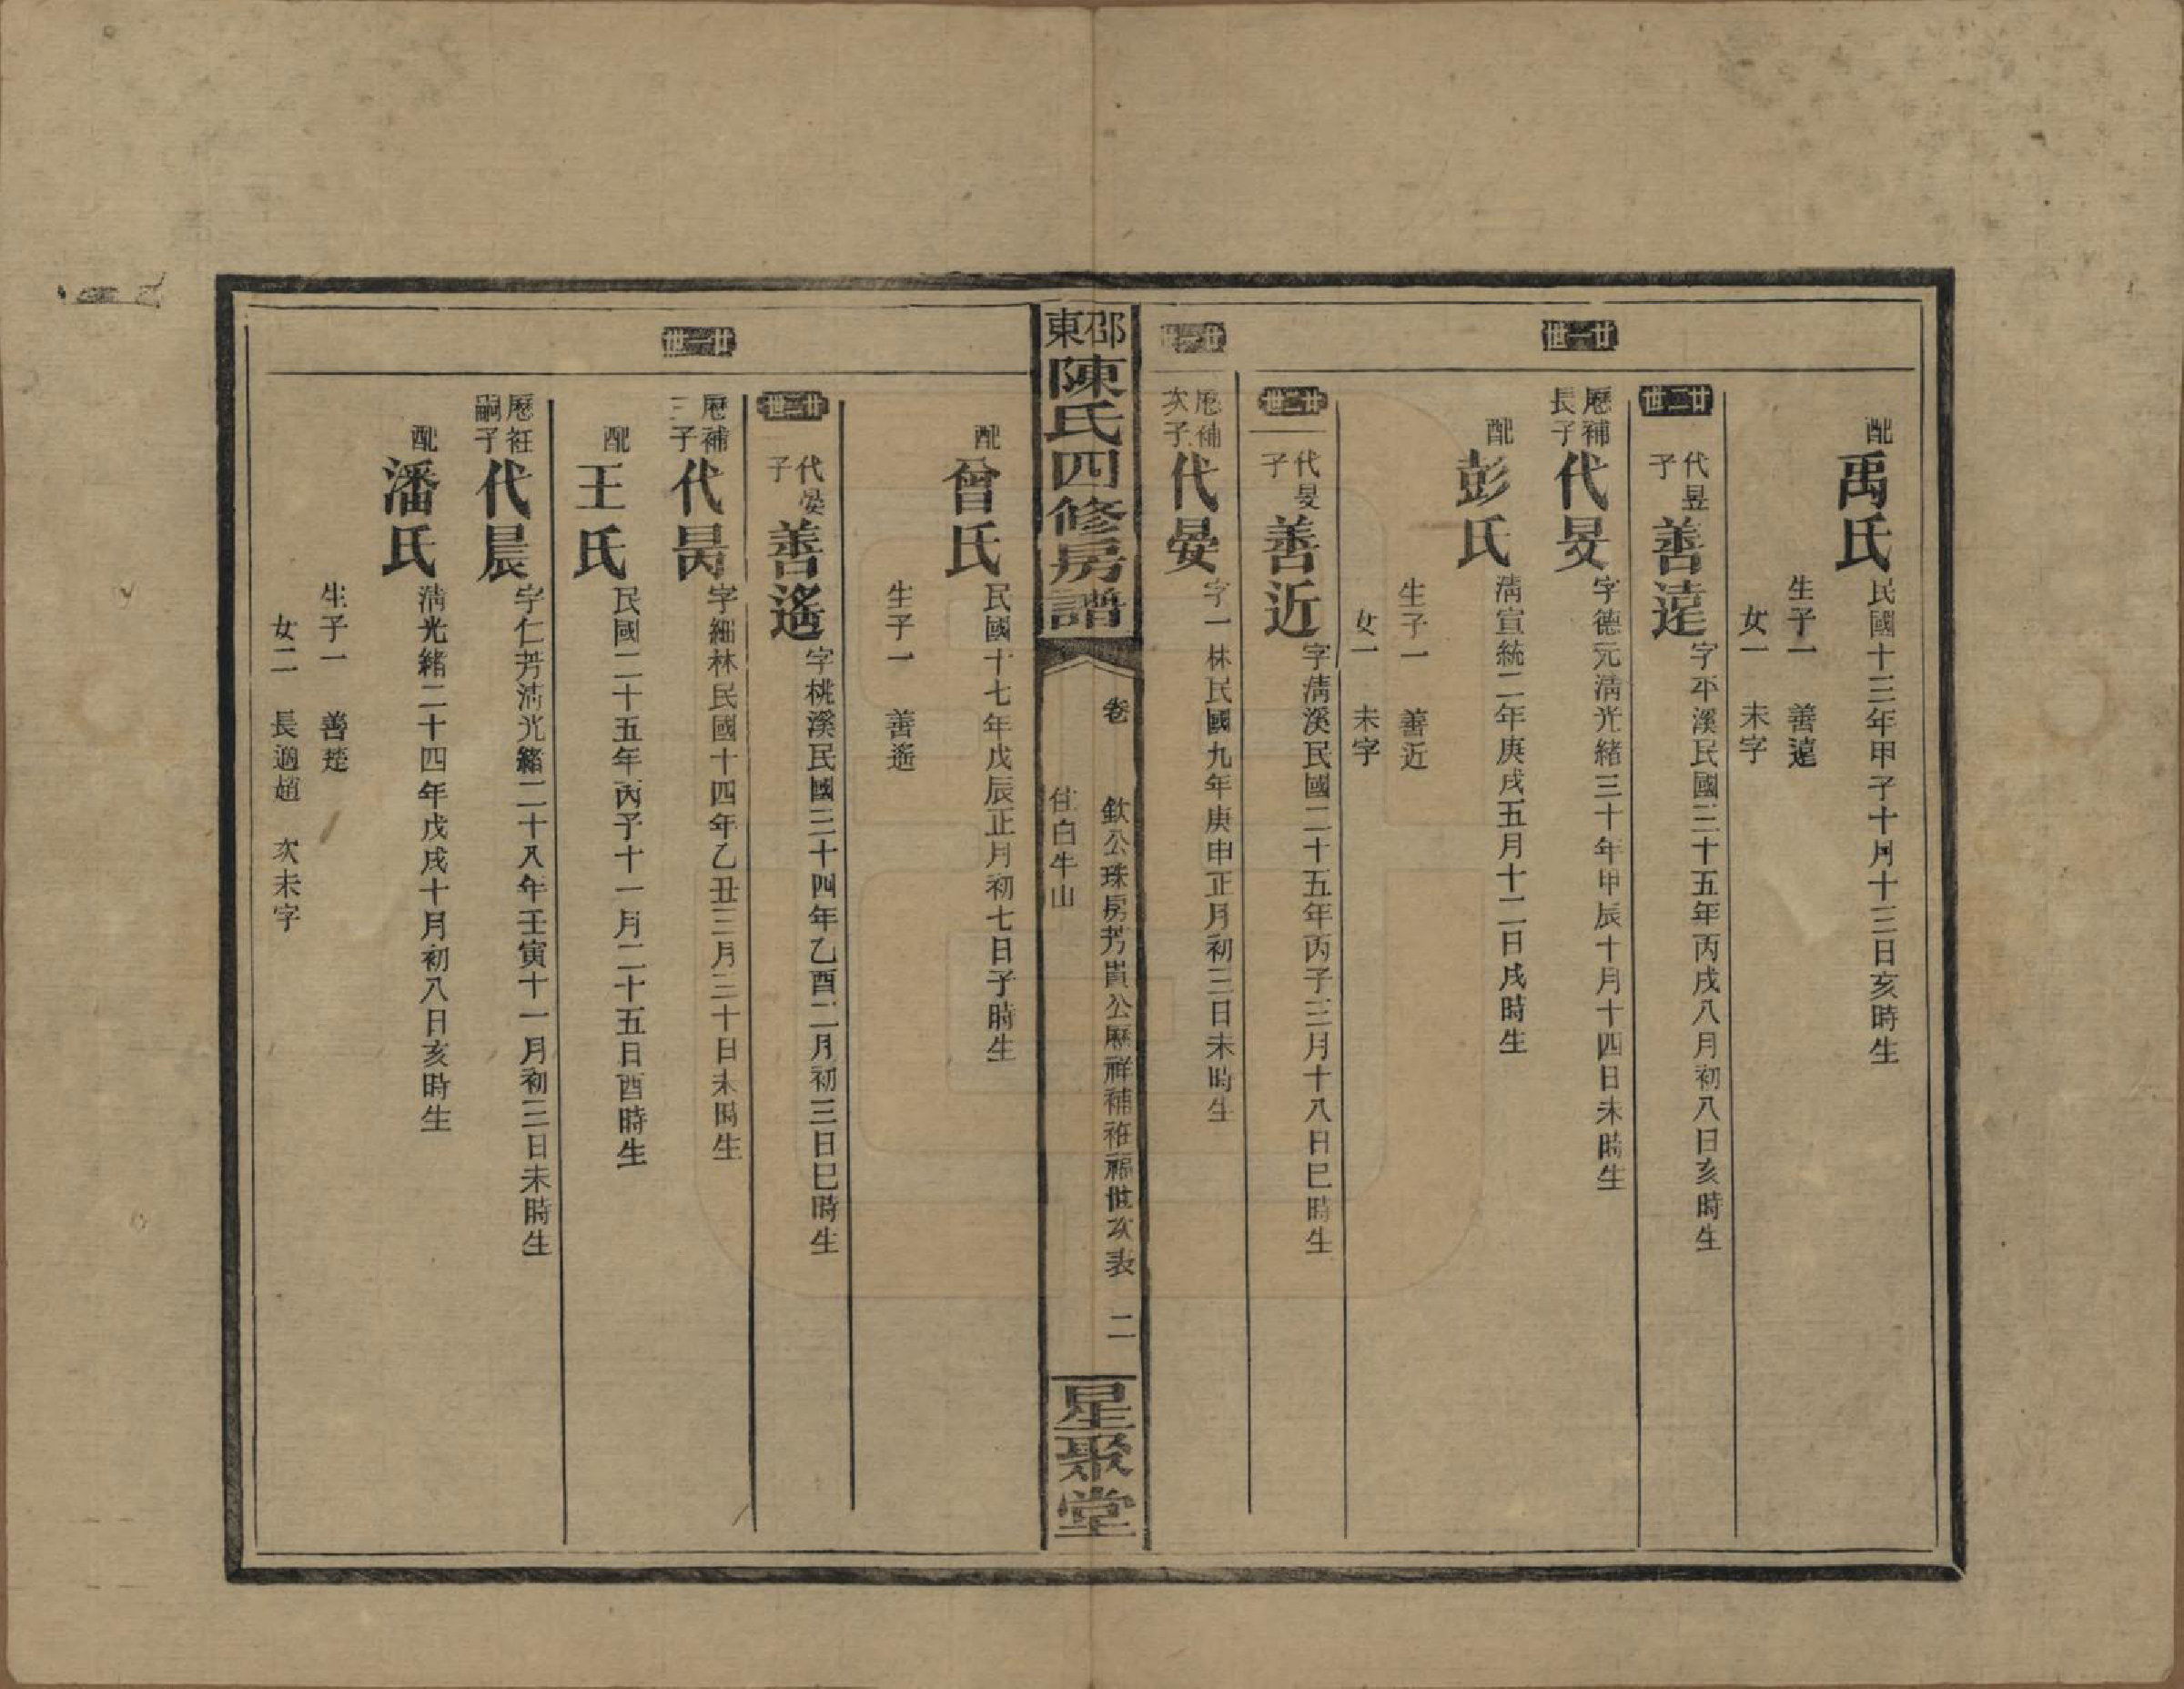 配禹氏民國十三年甲子十月十三日亥時生
生子一 善遠
女一 未字
廿二世 代昱子善遠字平溪民國三十五年丙戌八月初八日亥時生
廿一世 歷補長子代旻字德元清光緒三十年甲辰十月十四日未時生
配彭氏清宣統二年庚戌五月十二日戌時生
生子一 善近
女一 未字
廿二世 代旻子善近字清溪民國二十五年丙子三月十八日巳時生
廿一世 歷補次子代晏字一林民國九年庚申正月初三日未時生
邵東陳氏四修房譜
卷 欽公珠房芳貴公歷祥補 福世次表 二
住白牛山
星聚堂
配曾氏民國十七年戊辰正月初七日子時生
生子一 善遙
廿二世 代晏子善遙字桃溪民國三十四年乙酉二月初三日巳時生
廿一世 歷補三子代昺字細林民國十四年乙丑三月三十日未時生
配王氏民國二十五年丙子十一月二十五日酉時生
歷 嗣子代晨字仁芳清光緒二十八年壬寅十一月初三日未時生
配潘氏清光緒二十四年戊戌十月初八日亥時生
生子一 善楚
女二 長適趙 次未字